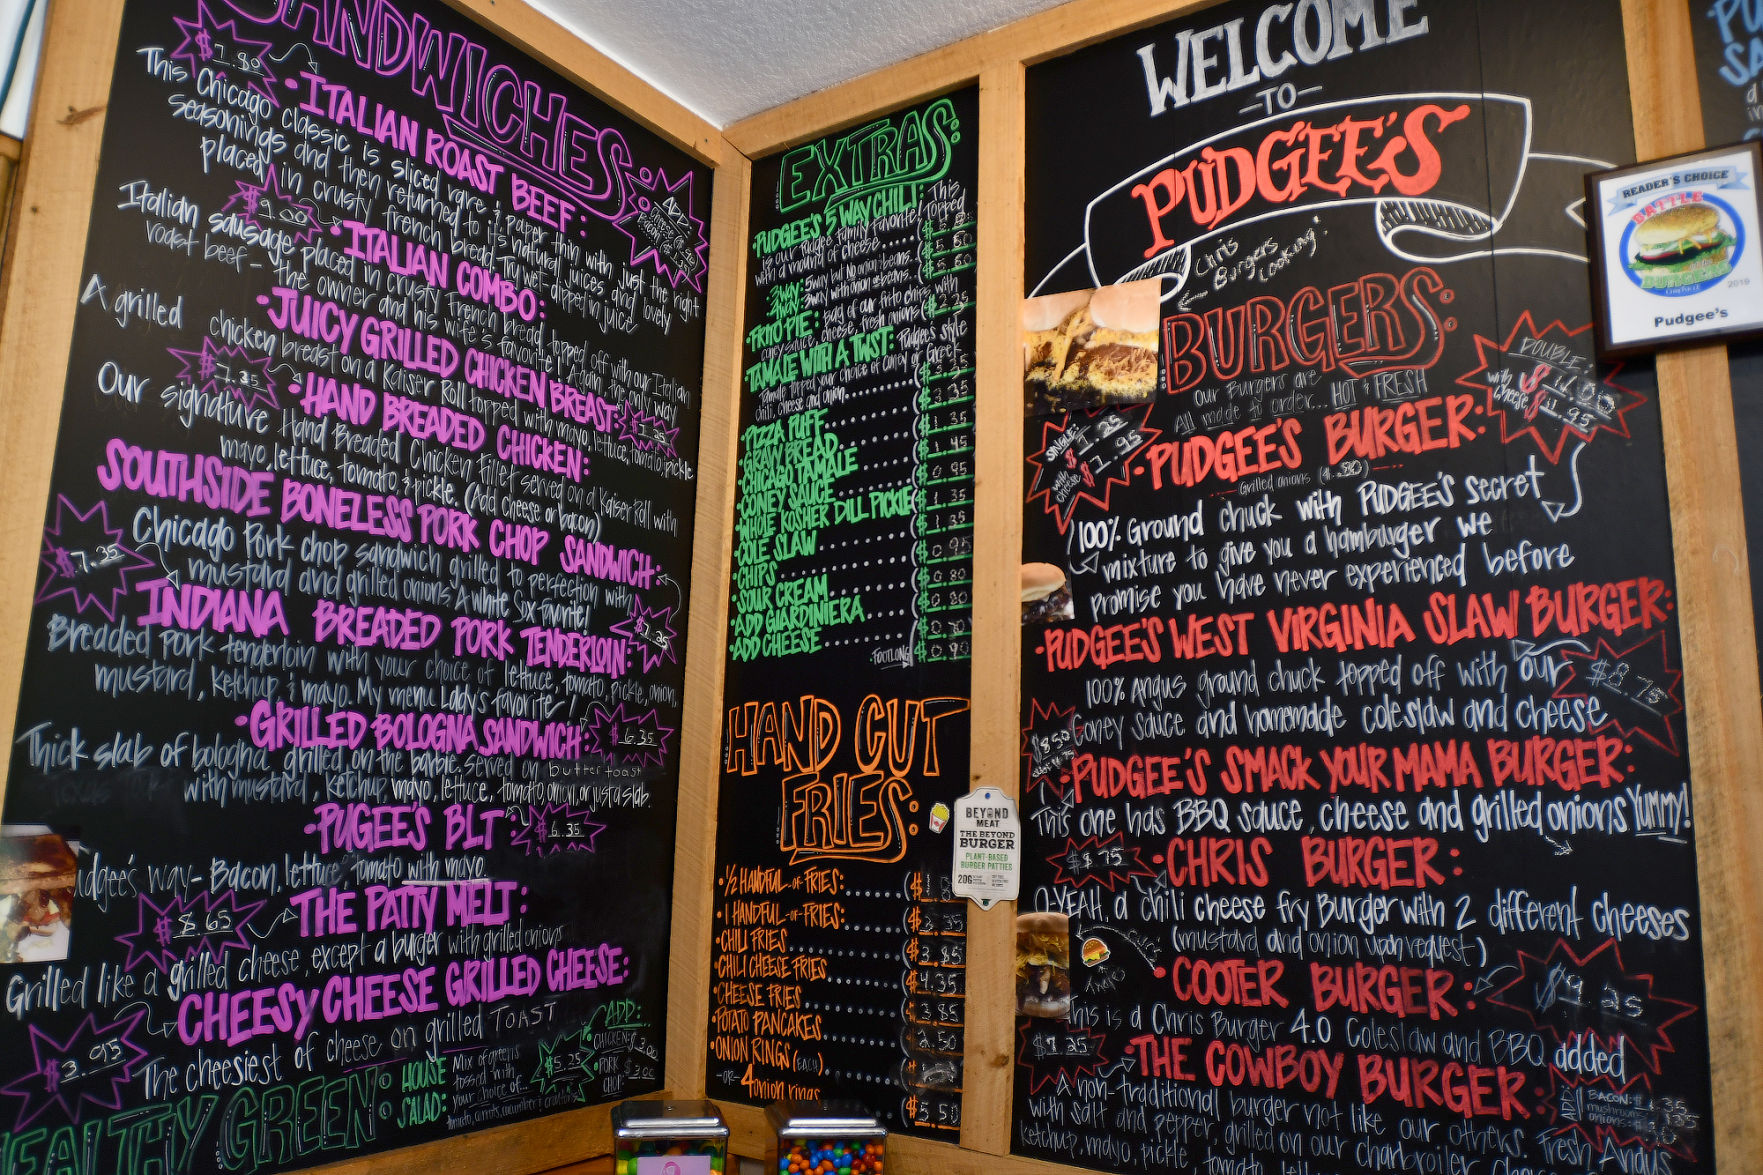 SANDWICHES
$7.80
• ITALIAN ROAST BEEF:
This Chicago classic is sliced rare & paper thin with just the right
seasonings and then returned to it's natural juices, and lovely
placed in crusty french bread. Try wet-dipped in juice
$9.00
• ITALIAN COMBO:
Italian sausage placed in crusty French bread topped off with our Italian
roast beef - the owner and his wife's favorite! Again, the only way
• JUICY GRILLED CHICKEN BREAST:
A grilled chicken breast on a Kaiser Roll topped with mayo, lettuce, tomato, pickle
$7.35
• HAND BREADED CHICKEN:
Our signature Hand Breaded Chicken Fillet served on a Kaiser Roll with
mayo, lettuce, tomato & pickle. (Add cheese or bacon)
SOUTHSIDE BONELESS PORK CHOP SANDWICH:
$7.35
Chicago Pork chop sandwich grilled to perfection with
mustard and grilled onions. A white Sox favorite!
INDIANA BREADED PORK TENDERLOIN:
$7.25
Breaded pork tenderloin with your choice of lettuce, tomato, pickle, onion,
mustard, ketchup, & mayo. My menu Lady's favorite!
• GRILLED BOLOGNA SANDWICH:
$6.35
Thick slab of bologna grilled on the barbie. served on butter toast
with mustard, ketchup, mayo, lettuce, tomato, onion, or just a slab.
• PUGEE'S BLT:
$6.35
way - Bacon, lettuce, tomato with mayo
$8.65
THE PATTY MELT:
Grilled like a grilled cheese, except a burger with grilled onions
CHEESY CHEESE GRILLED CHEESE:
$3.95
The cheesiest of cheese on grilled TOAST
HEALTHY GREEN:
HOUSE SALAD:
Mix of greens
tossed with
your choice of...
$5.25
ADD:
CHICKEN: $3.00
• PORK CHOP: $3.00
EXTRAS:
• PUDGEE'S 5 WAY CHILI: This
is our Pudgee family favorite! Topped
with a mound of cheese
3 WAY: 3 way but No onion or beans
4 WAY: 3 way with onion or beans
$5.60
• FRITO PIE: Bag of our frito chips with
coney sauce, cheese, fresh onions $2.25
• TAMALE WITH A TWIST: Pudgee's style
Tamale topped your choice of Coney or Green
chili, cheese and onion
• PIZZA PUFF
• GRAW BREAD
• CHICAGO TAMALE
• CONEY SAUCE
• WHOLE KOSHER DILL PICKLE
• COLE SLAW
• CHIPS
• SOUR CREAM
• ADD GIARDINIERA
• ADD CHEESE
• FOOTLONG
HAND CUT
FRIES:
• ½ HANDFUL-OF-FRIES:
• 1 HANDFUL-OF-FRIES: $3.35
• CHILI FRIES $3.85
• CHILI CHEESE FRIES $4.35
• CHEESE FRIES $3.85
• POTATO PANCAKES $2.50
• ONION RINGS (EACH)
-OR- 4 onion rings $5.50
BEYOND
MEAT
THE BEYOND
BURGER
PLANT-BASED
BURGER PATTIES
20G
WELCOME
-TO-
PUDGEE'S
Chris
Burgers
Looking!
BURGERS:
Our Burgers are
All made to order... HOT & FRESH
DOUBLE
with cheese
SINGLE:
with cheese
• PUDGEE'S BURGER:
Grilled onions (.80)
100% Ground chuck with PUDGEE'S secret
mixture to give you a hamburger we
promise you have never experienced before
• PUDGEE'S WEST VIRGINIA SLAW BURGER:
$8.75
100% Angus ground chuck topped off with our
Coney sauce and homemade coleslaw and cheese
$8.50
• PUDGEE'S SMACK YOUR MAMA BURGER:
This one has BBQ sauce, cheese and grilled onions Yummy!
$8.75
• CHRIS BURGER:
O-YEAH, a chili cheese fry Burger with 2 different cheeses
(mustard and onion upon request)
• COOTER BURGER:
$9.25
This is a Chris Burger 4.0 Coleslaw and BBQ added
$7.25
• THE COWBOY BURGER:
ADD
BACON:
mushroom
onions:
A non-traditional burger not like our others. Fresh Angus
with salt and pepper, grilled on our charbroiler
ketchup, mayo, pickle, tomato,
READER'S CHOICE
BATTLE
BURGER
CHRONICLE
2019
Pudgee's